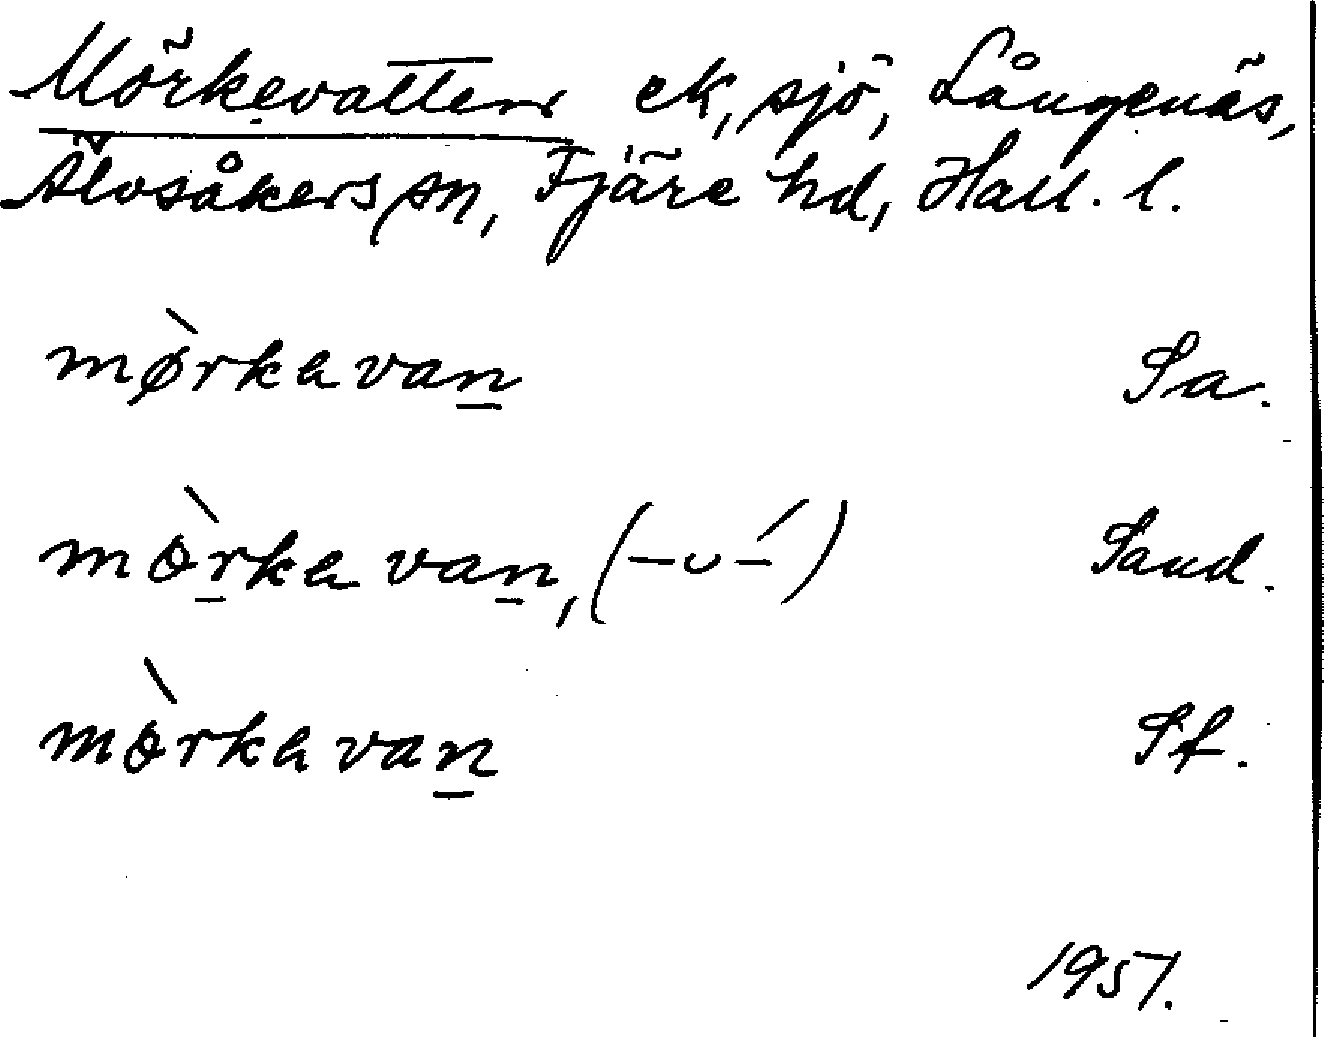 Mörkevatten ek, sjö, Långenäs,
Älvsåkers sn, Fjäre hd, Hall. l.
mø̀rkavan̲ Sa.
mòr̲kavan̲, (–∪–́) Sand.
mòrkavan̲ Sf.
1951.